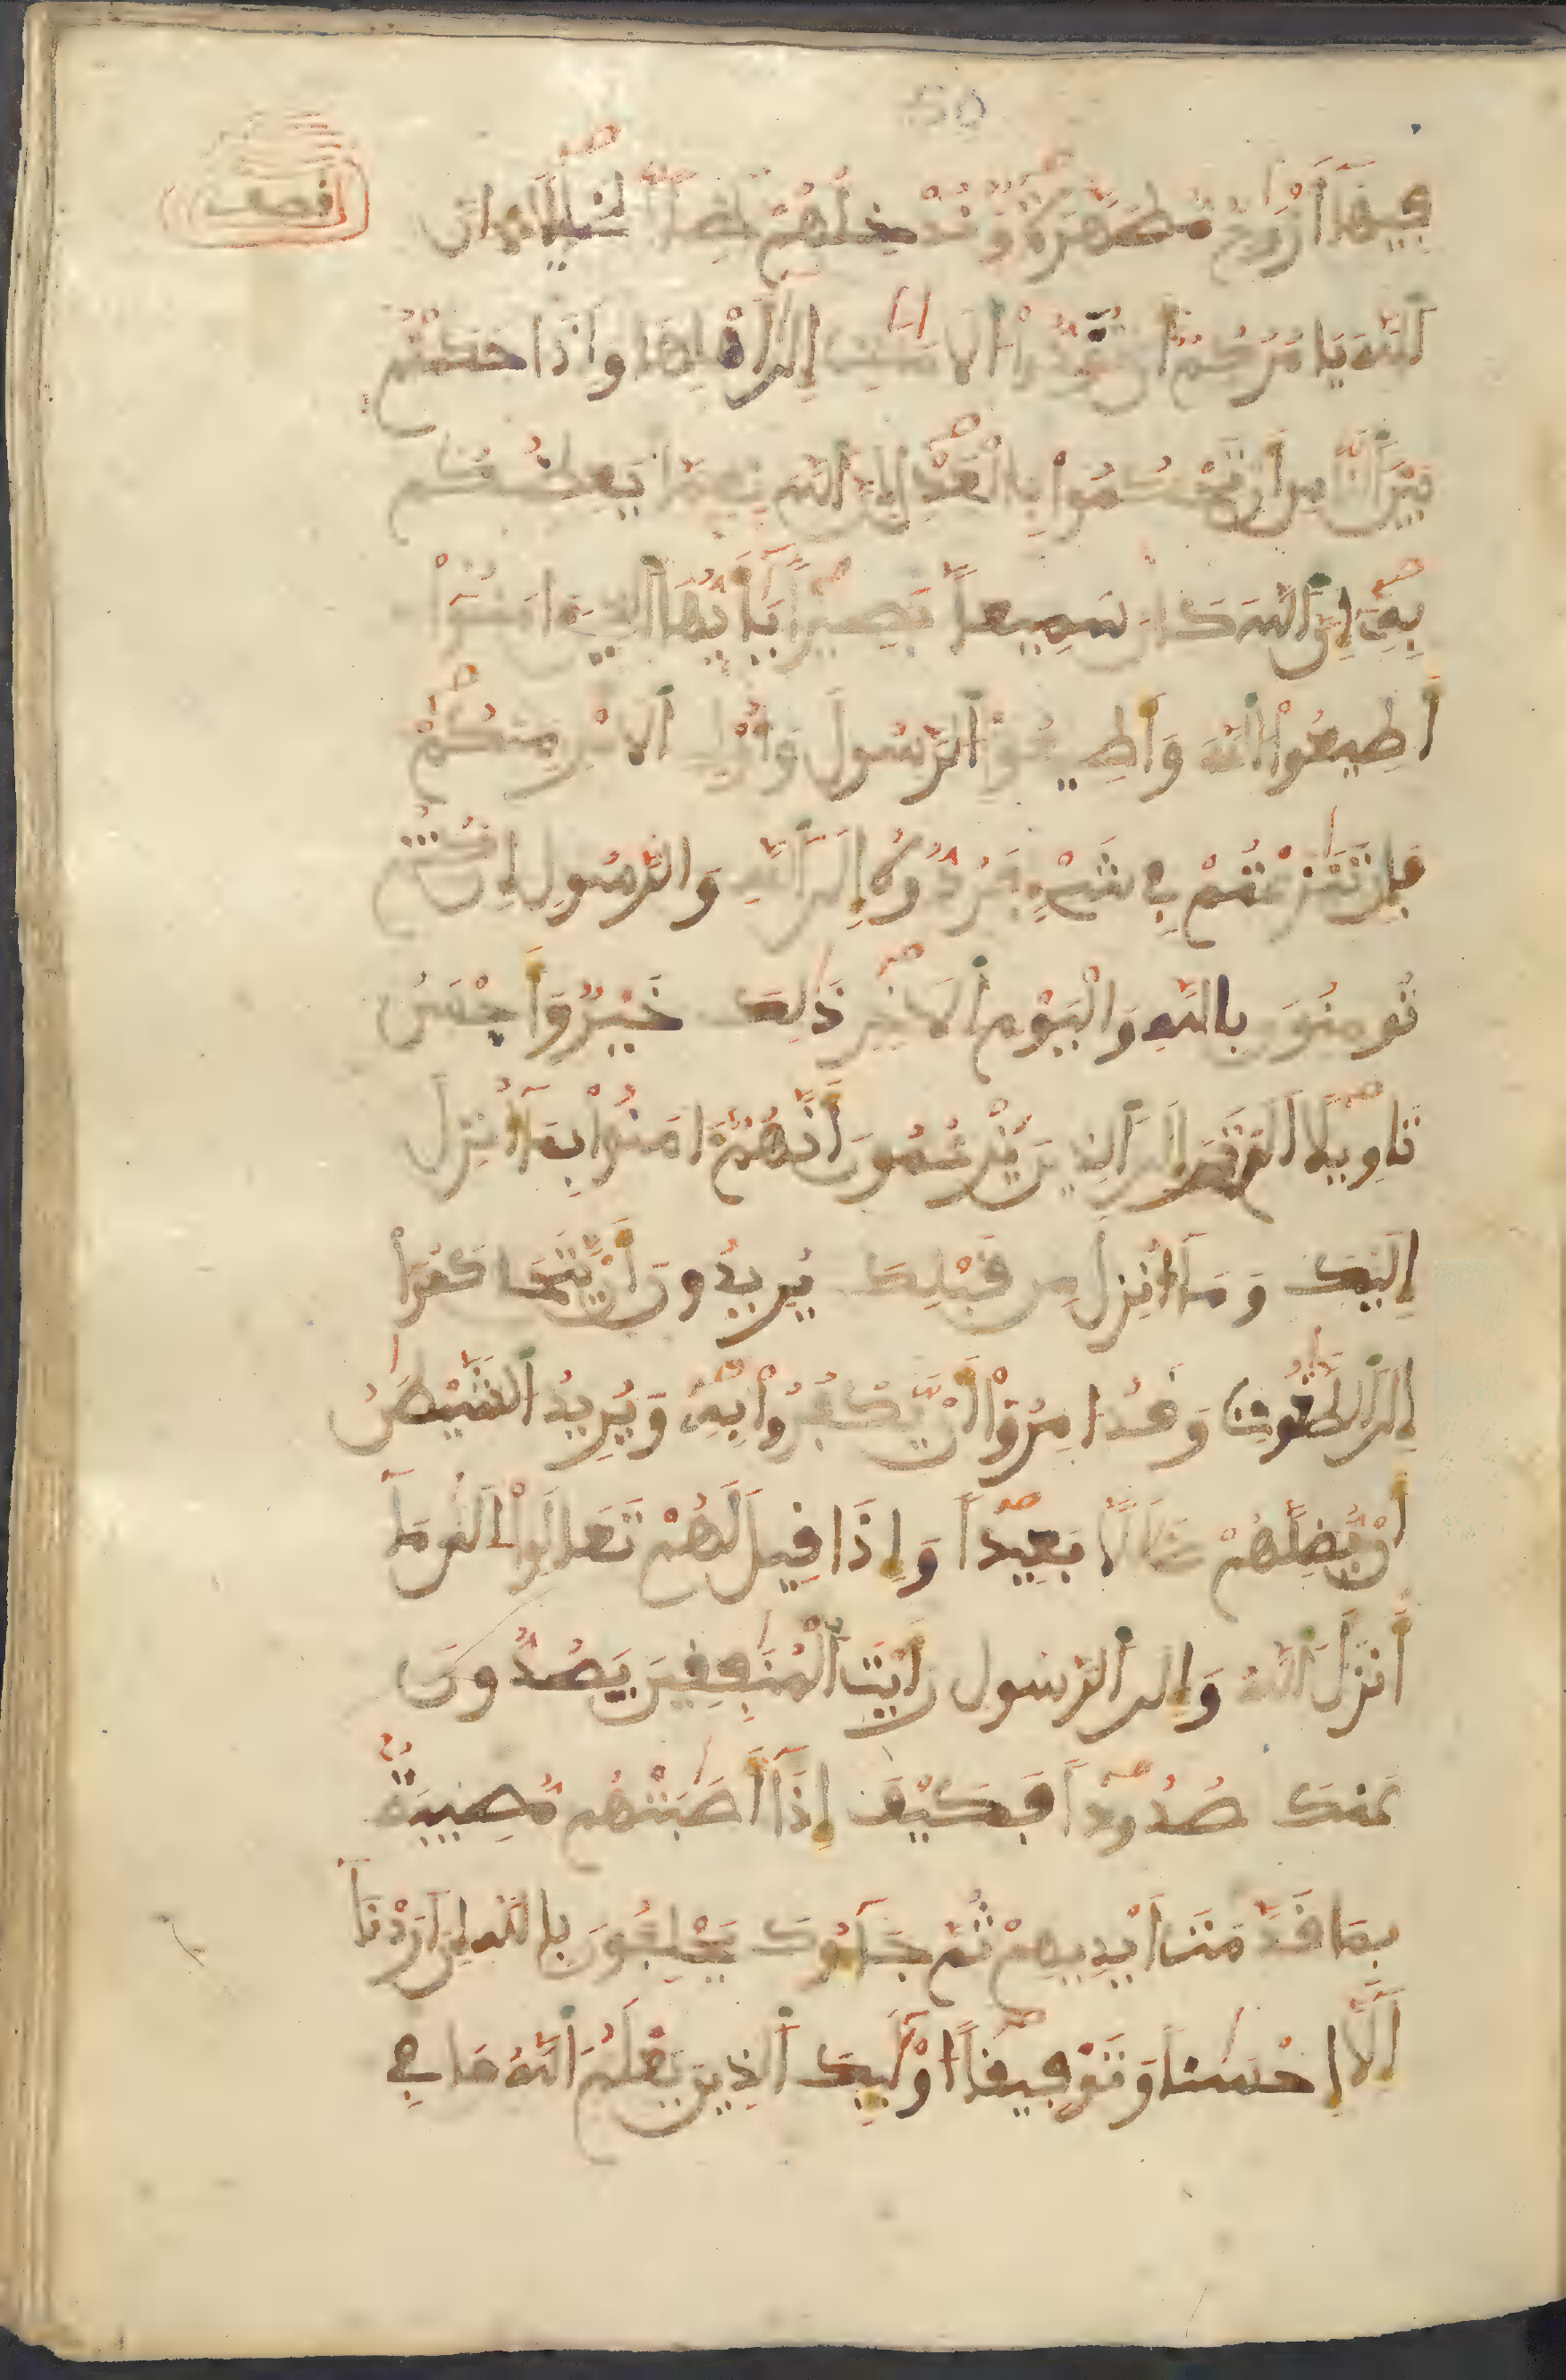 50
نصف
فيها أزوج مطهرة وندخلهم ظلا ظليلا إن
ٱلله يامركم أن تؤدوا ٱلامنت إلى أهلها وإذا حكمتم
بين ٱلناس أن تحكموا بالعدل إن ٱلله نعما يعظكم
به إن ٱلله كان سميعا بصيرا يأيها ٱلذين ءامنوا
أطيعوا ٱلله وأطيعوا ٱلرسول وأولى ٱلامر منكم
فإن تنزعتم في شيء فردوه إلى ٱلله والرسول إن كنتم
تومنون بالله واليوم ٱلاخر ذلك خير وأحسن
تاويلا الم تر إلى ٱلذين يزعمون أنهم ءامنوا بما أنزل
إليك وما أنزل من قبلك يريدون أن يتحاكموا
إلى ٱلطغوت وقد امروا أن يكفروا به ويريد ٱلشيطن
أن يضلهم ضللا بعيدا وإذا قيل لهم تعالوا إلى ما
أنزل ٱلله وإلى ٱلرسول رأيت ٱلمنفقين يصدون
عنك صدودا فكيف إذا أصبتهم مصيبة
بما قدمت أيديهم ثم جاءوك يحلفون بالله إن أردنا
إلا إحسنا وتوفيقا أولئك ٱلذين يعلم ٱلله ما في